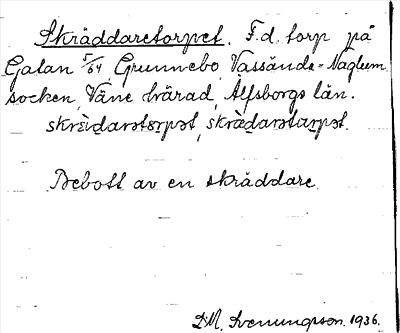 Skräddaretorpet. F.d. torp på
Galan 5/64, Grunnebo, Vassända-Naglum
socken, Väne härad, Älfsborgs län.
skrèidarətɔrpət, skrædarətarpət.
Bebott av en skräddare.
D.M. Svenungsson. 1936.